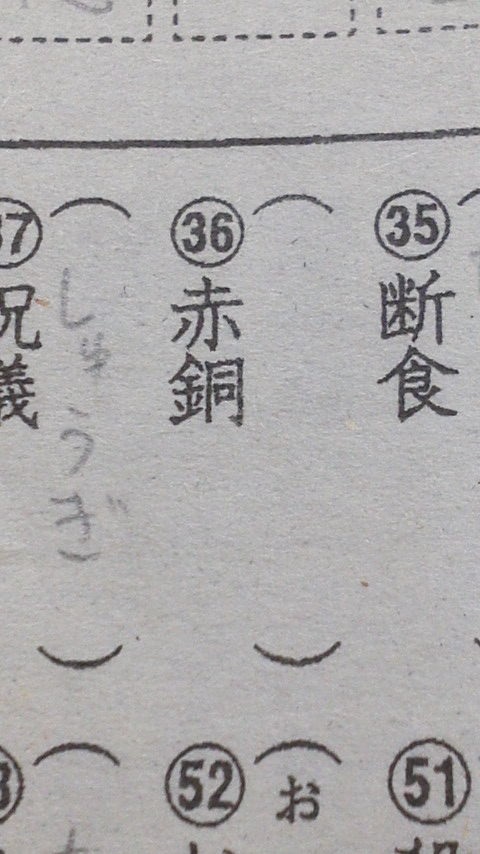 ㉟断食
㊱赤銅
㊲祝儀
しゅうぎ
51
52
お